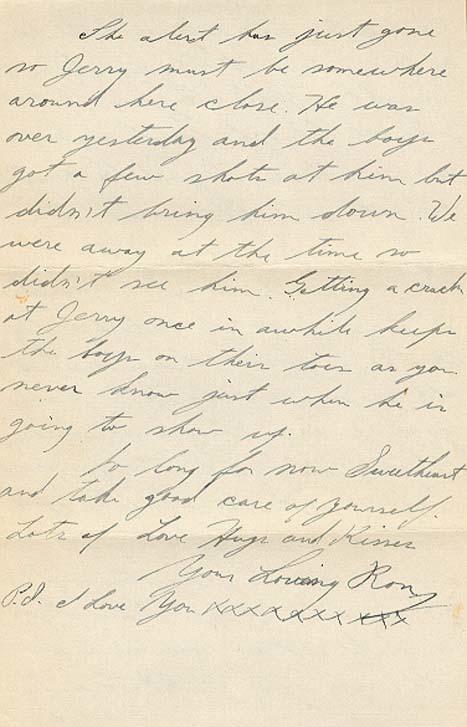 The alert has just gone
so Jerry must be somewhere
around here close. He was
over yesterday and the boys
got a few shots at him but
didn't bring him down. We
were away at the time so
didn't see him. Getting a crack
at Jerry once in awhile keeps
the boys on their toes as you
never know just when he is
going to show up.
So long for now Sweetheart
and take good care of yourself.
Lots of Love Hugs and Kisses
Your Loving Ron
P.S. I Love You xxxxxxx xxx